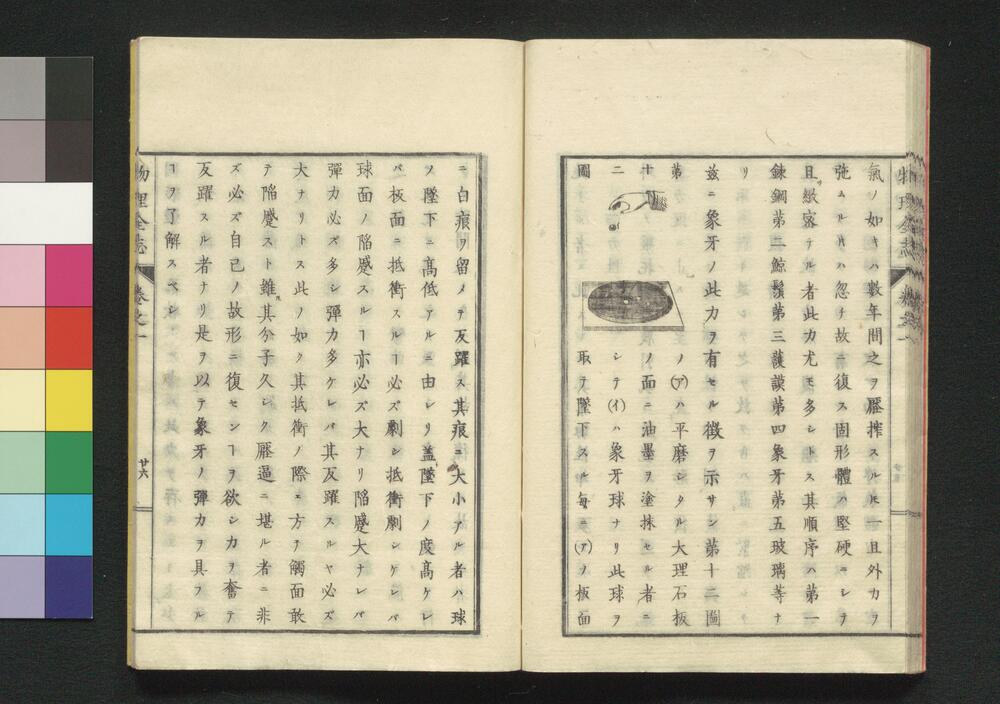 氣ノ如キハ數年間之ヲ壓搾スルモ一旦外力ヲ
弛ムルキハ忽チ故ニ復ス固形體ハ堅硬ニシテ
且緻密ナル者此力尤モ多シトス其順序ハ第一
錬鋼第二鯨鬚第三護謨第四象牙第五玻璃等ナ
リ
茲ニ象牙ノ此力ヲ有セル徴ヲ示サン第十二圖
ノ(ア)ハ平磨シタル大理石板
ノ面ニ油墨ヲ塗抹セル者ニ
シテ(イ)ハ象牙球ナリ此球ヲ
取テ墜下スル每ニ(ア)ノ板面
第十二圖
ニ白痕ヲ留メテ反躍ス其痕ニ大小アル者ハ球
ノ墜下ニ高低アルニ由レリ蓋墜下ノ度高ケレ
バ板面ニ抵衝スルヿ必ズ劇シ抵衝劇シケレバ
球面ノ陷蹙スルヿ亦必ズ大ナリ陷蹙大ナレバ
彈力必ズ多シ彈力多ケレバ其反躍スルヤ必ズ
大ナリトス此ノ如ク其抵衝ノ際ニ方テ觸面敢
テ陷蹙スト雖其分子久シク壓逼ニ堪ル者ニ非
ズ必ズ自己ノ故形ニ復センヿヲ欲シカヲ奮テ
反躍スル者ナリ是ヲ以テ象牙ノ彈力ヲ具フル
ヿヲ了解スベシ
物理全志
卷之一
廿六